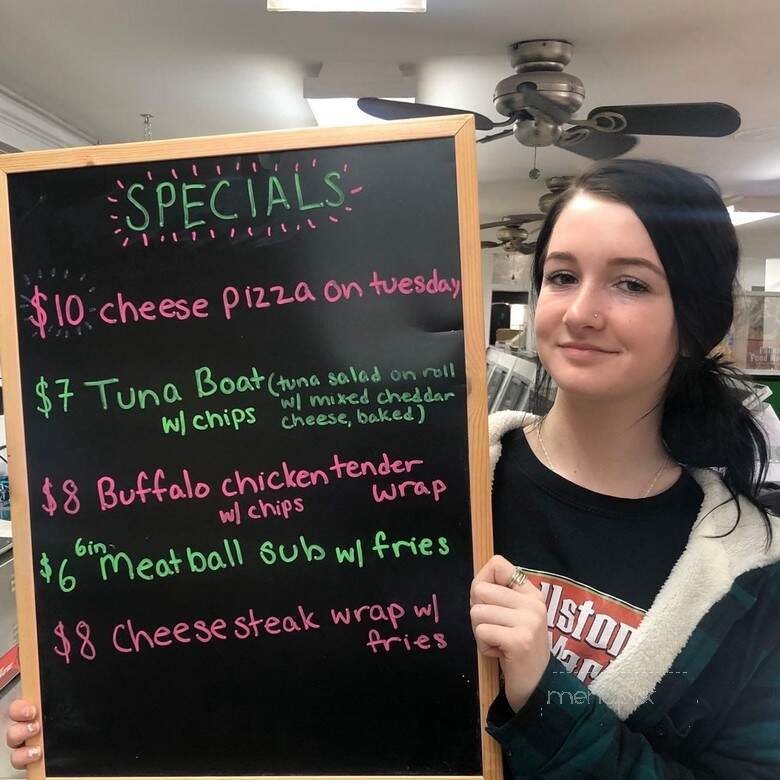 SPECIALS
$10 cheese pizza on tuesday
$7 Tuna Boat (tuna salad on roll
w/ chips w/ mixed cheddar
cheese, baked)
$8 Buffalo chicken tender
w/ chips wrap
$6 6in Meatball sub w/ fries
$8 Cheesesteak wrap w/
fries